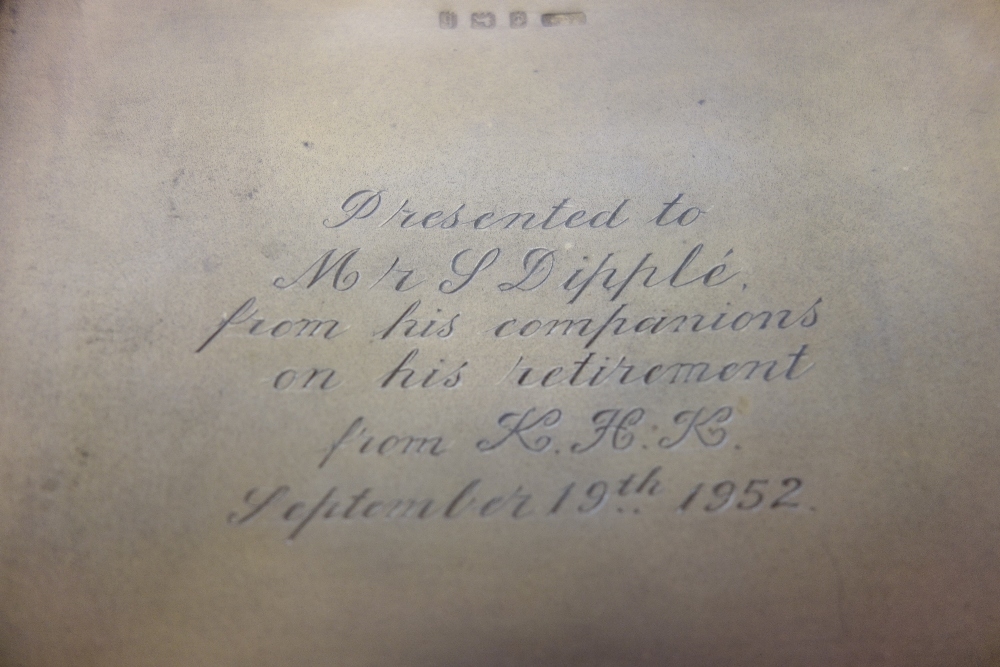 Presented to
Mr S Dipplé.
from his companions
on his retirement
from K.H.K.
September 19th 1952.